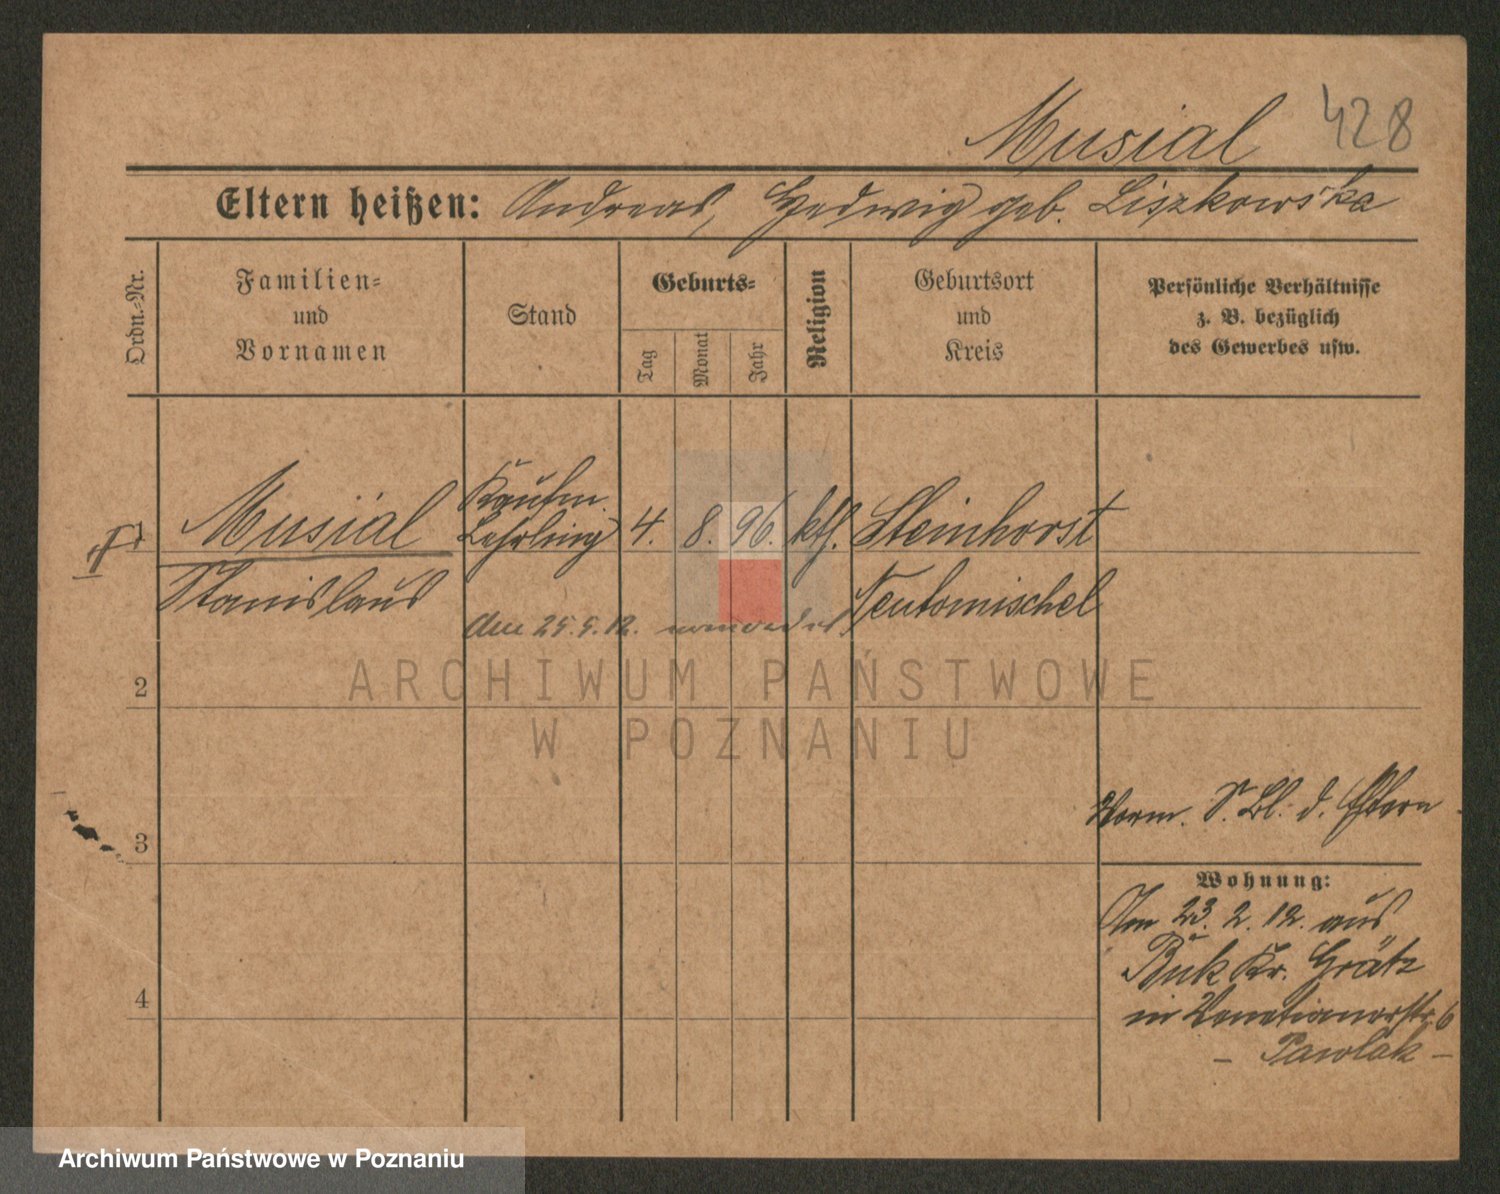 Musial 428
Eltern heißen: Andreas, Hedwig geb. Liszkowska
Ordn.-Nr.
Familien-
und
Vornamen
Stand
Geburts-
Tag
Monat
Jahr
Religion
Geburtsort
und
Kreis
Persönliche Verhältnisse
z. B. bezüglich
des Gewerbes usw.
1
Musiał
Stanislaus
Kaufm.
Lehrling
4. 8. 96. kth.
Steinhorst
Neutomischel
den 25.5.12.
2
3
4
Vorm. S. Bl. d. Eltern
Wohnung:
Am 23. 2. 12. aus
Buk Kr. Grätz
in Venetianerstr. 6
- Pawlak -
ARCHIWUM PAŃSTWOWE
W POZNANIU
Archiwum Państwowe w Poznaniu